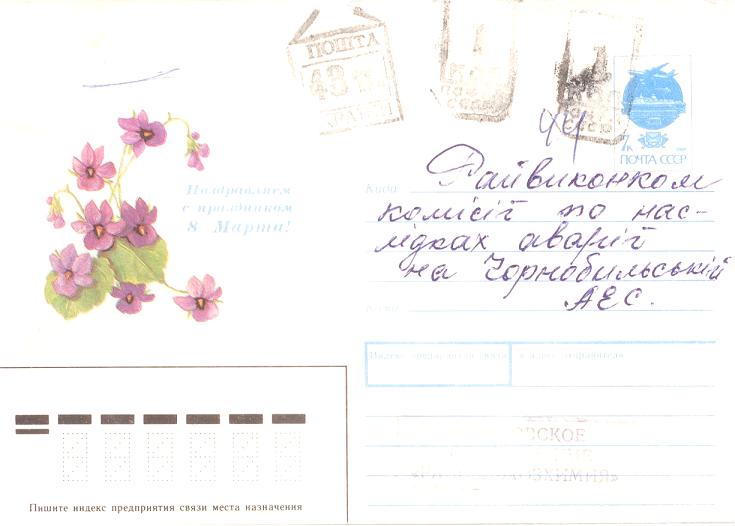 ПОШТА
43
1
44
7к
ПОЧТА СССР
Поздравляем
с праздником
8 Марта!
Куда
Райвиконком
комісії по нас-
лідках аварії
на Чорнобильській
АЕС.
Кому
Индекс предприятия связи и адрес отправителя
Пишите индекс предприятия связи места назначения